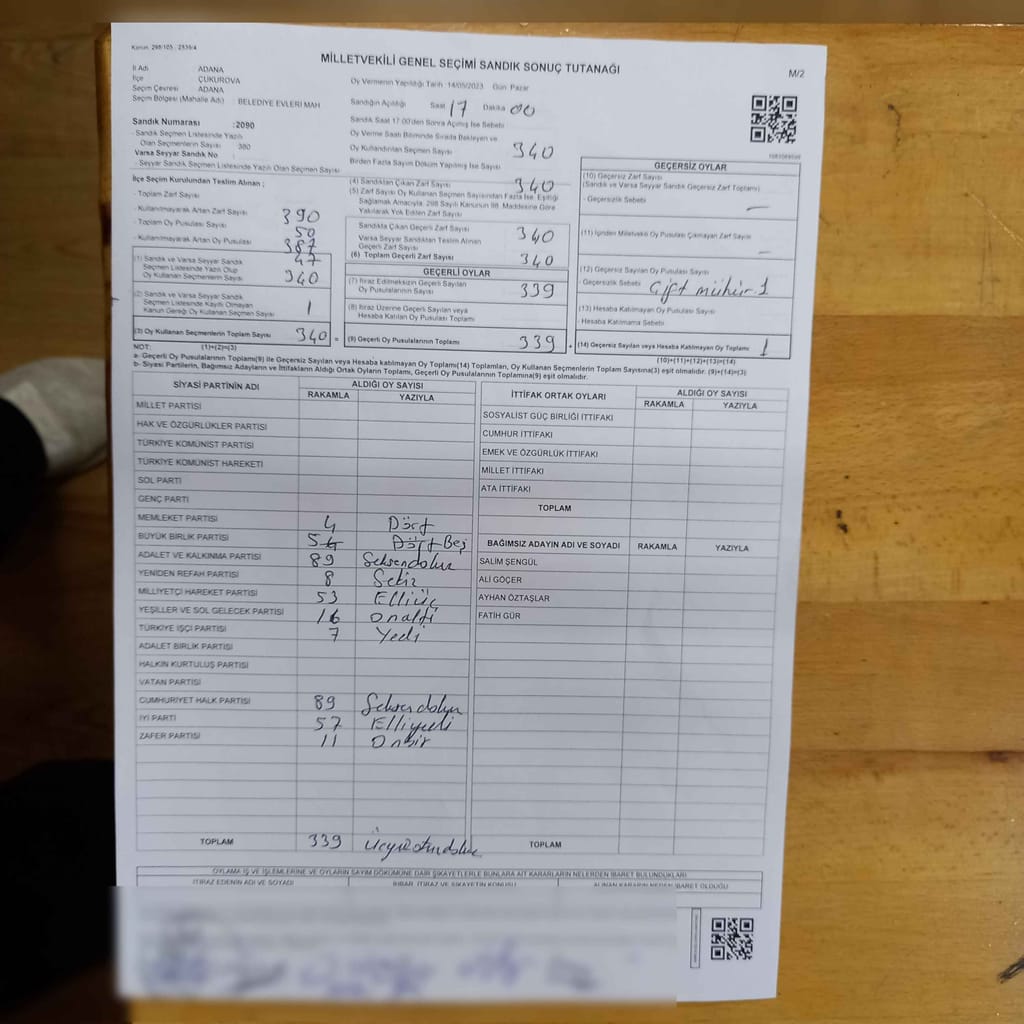 Kanun: 298/105 - 2839/4
MİLLETVEKİLİ GENEL SEÇİMİ SANDIK SONUÇ TUTANAĞI
M/2
İl Adı ADANA
İlçe ÇUKUROVA
Seçim Çevresi ADANA
Seçim Bölgesi (Mahalle Adı) : BELEDİYE EVLERİ MAH
Sandık Numarası :2090
- Sandık Seçmen Listesinde Yazılı
Olan Seçmenlerin Sayısı 380
Varsa Seyyar Sandık No
- Seyyar Sandık Seçmen Listesinde Yazılı Olan Seçmen Sayısı
İlçe Seçim Kurulundan Teslim Alınan ;
- Toplam Zarf Sayısı 390
- Kullanılmayarak Artan Zarf Sayısı 50
- Toplam Oy Pusulası Sayısı 387
- Kullanılmayarak Artan Oy Pusulası 47
(1) Sandık ve Varsa Seyyar Sandık
Seçmen Listesinde Yazılı Olup
Oy Kullanan Seçmenlerin Sayısı 340
(2) Sandık ve Varsa Seyyar Sandık
Seçmen Listesinde Kayıtlı Olmayan
Kanun Gereği Oy Kullanan Seçmen Sayısı 1
(3) Oy Kullanan Seçmenlerin Toplam Sayısı 340 =
Oy Vermenin Yapıldığı Tarih : 14/05/2023 Gün Pazar
Sandığın Açıldığı Saat 17 Dakika 00
Sandık Saat 17:00'den Sonra Açılmış İse Sebebi
Oy Verme Saati Bitiminde Sırada Bekleyen ve
Oy Kullandırılan Seçmen Sayısı 340
Birden Fazla Sayım Döküm Yapılmış İse Sayısı
(4) Sandıktan Çıkan Zarf Sayısı 340
(5) Zarf Sayısı Oy Kullanan Seçmen Sayısından Fazla İse, Eşitliği
Sağlamak Amacıyla, 298 Sayılı Kanunun 98. Maddesine Göre
Yakılarak Yok Edilen Zarf Sayısı
Sandıkta Çıkan Geçerli Zarf Sayısı 340
Varsa Seyyar Sandıktan Teslim Alınan
Geçerli Zarf Sayısı
(6) Toplam Geçerli Zarf Sayısı 340
GEÇERLİ OYLAR
(7) İtiraz Edilmeksizin Geçerli Sayılan
Oy Pusulalarının Sayısı 339
(8) İtiraz Üzerine Geçerli Sayılan veya
Hesaba Katılan Oy Pusulası Toplamı
(9) Geçerli Oy Pusulalarının Toplamı 339 +
GEÇERSİZ OYLAR
(10) Geçersiz Zarf Sayısı
(Sandık ve Varsa Seyyar Sandık Geçersiz Zarf Toplamı)
- Geçersizlik Sebebi —
(11) İçinden Milletvekili Oy Pusulası Çıkmayan Zarf Sayısı
—
(12) Geçersiz Sayılan Oy Pusulası Sayısı
- Geçersizlik Sebebi Çift mühür 1
(13) Hesaba Katılmayan Oy Pusulası Sayısı
- Hesaba Katılmama Sebebi
(14) Geçersiz Sayılan veya Hesaba Katılmayan Oy Toplamı 1
NOT: (1)+(2)=(3)
(10)+(11)+(12)+(13)=(14)
a- Geçerli Oy Pusulalarının Toplamı(9) ile Geçersiz Sayılan veya Hesaba katılmayan Oy Toplamı(14) Toplamları, Oy Kullanan Seçmenlerin Toplam Sayısına(3) eşit olmalıdır. (9)+(14)=(3)
b- Siyasi Partilerin, Bağımsız Adayların ve İttifakların Aldığı Ortak Oyların Toplamı, Geçerli Oy Pusulalarının Toplamına(9) eşit olmalıdır.
SİYASİ PARTİNİN ADI ALDIĞI OY SAYISI
RAKAMLA YAZIYLA
MİLLET PARTİSİ
HAK VE ÖZGÜRLÜKLER PARTİSİ
TÜRKİYE KOMÜNİST PARTİSİ
TÜRKİYE KOMÜNİST HAREKETİ
SOL PARTİ
GENÇ PARTİ
MEMLEKET PARTİSİ 4 Dört
BÜYÜK BİRLİK PARTİSİ 5 4 Dört Beş
ADALET VE KALKINMA PARTİSİ 89 Seksendokuz
YENİDEN REFAH PARTİSİ 8 Sekiz
MİLLİYETÇİ HAREKET PARTİSİ 53 Elliüç
YEŞİLLER VE SOL GELECEK PARTİSİ 16 Onaltı
TÜRKİYE İŞÇİ PARTİSİ 7 Yedi
ADALET BİRLİK PARTİSİ
HALKIN KURTULUŞ PARTİSİ
VATAN PARTİSİ
CUMHURİYET HALK PARTİSİ 89 Seksendokuz
İYİ PARTİ 57 Elliyedi
ZAFER PARTİSİ 11 Onbir
TOPLAM 339 Üçyüzotuzdokuz
İTTİFAK ORTAK OYLARI ALDIĞI OY SAYISI
RAKAMLA YAZIYLA
SOSYALİST GÜÇ BİRLİĞİ İTTİFAKI
CUMHUR İTTİFAKI
EMEK VE ÖZGÜRLÜK İTTİFAKI
MİLLET İTTİFAKI
ATA İTTİFAKI
TOPLAM
BAĞIMSIZ ADAYIN ADI VE SOYADI RAKAMLA YAZIYLA
SALİM ŞENGÜL
ALİ GÖÇER
AYHAN ÖZTAŞLAR
FATİH GÜR
TOPLAM
OYLAMA İŞ VE İŞLEMLERİNE VE OYLARIN SAYIM DÖKÜMÜNE DAİR ŞİKAYETLERLE BUNLARA AİT KARARLARIN NELERDEN İBARET BULUNDUKLARI
İTİRAZ EDENİN ADI VE SOYADI İHBAR, İTİRAZ VE ŞİKAYETİN KONUSU ALINAN KARARIN NEDEN İBARET OLDUĞU